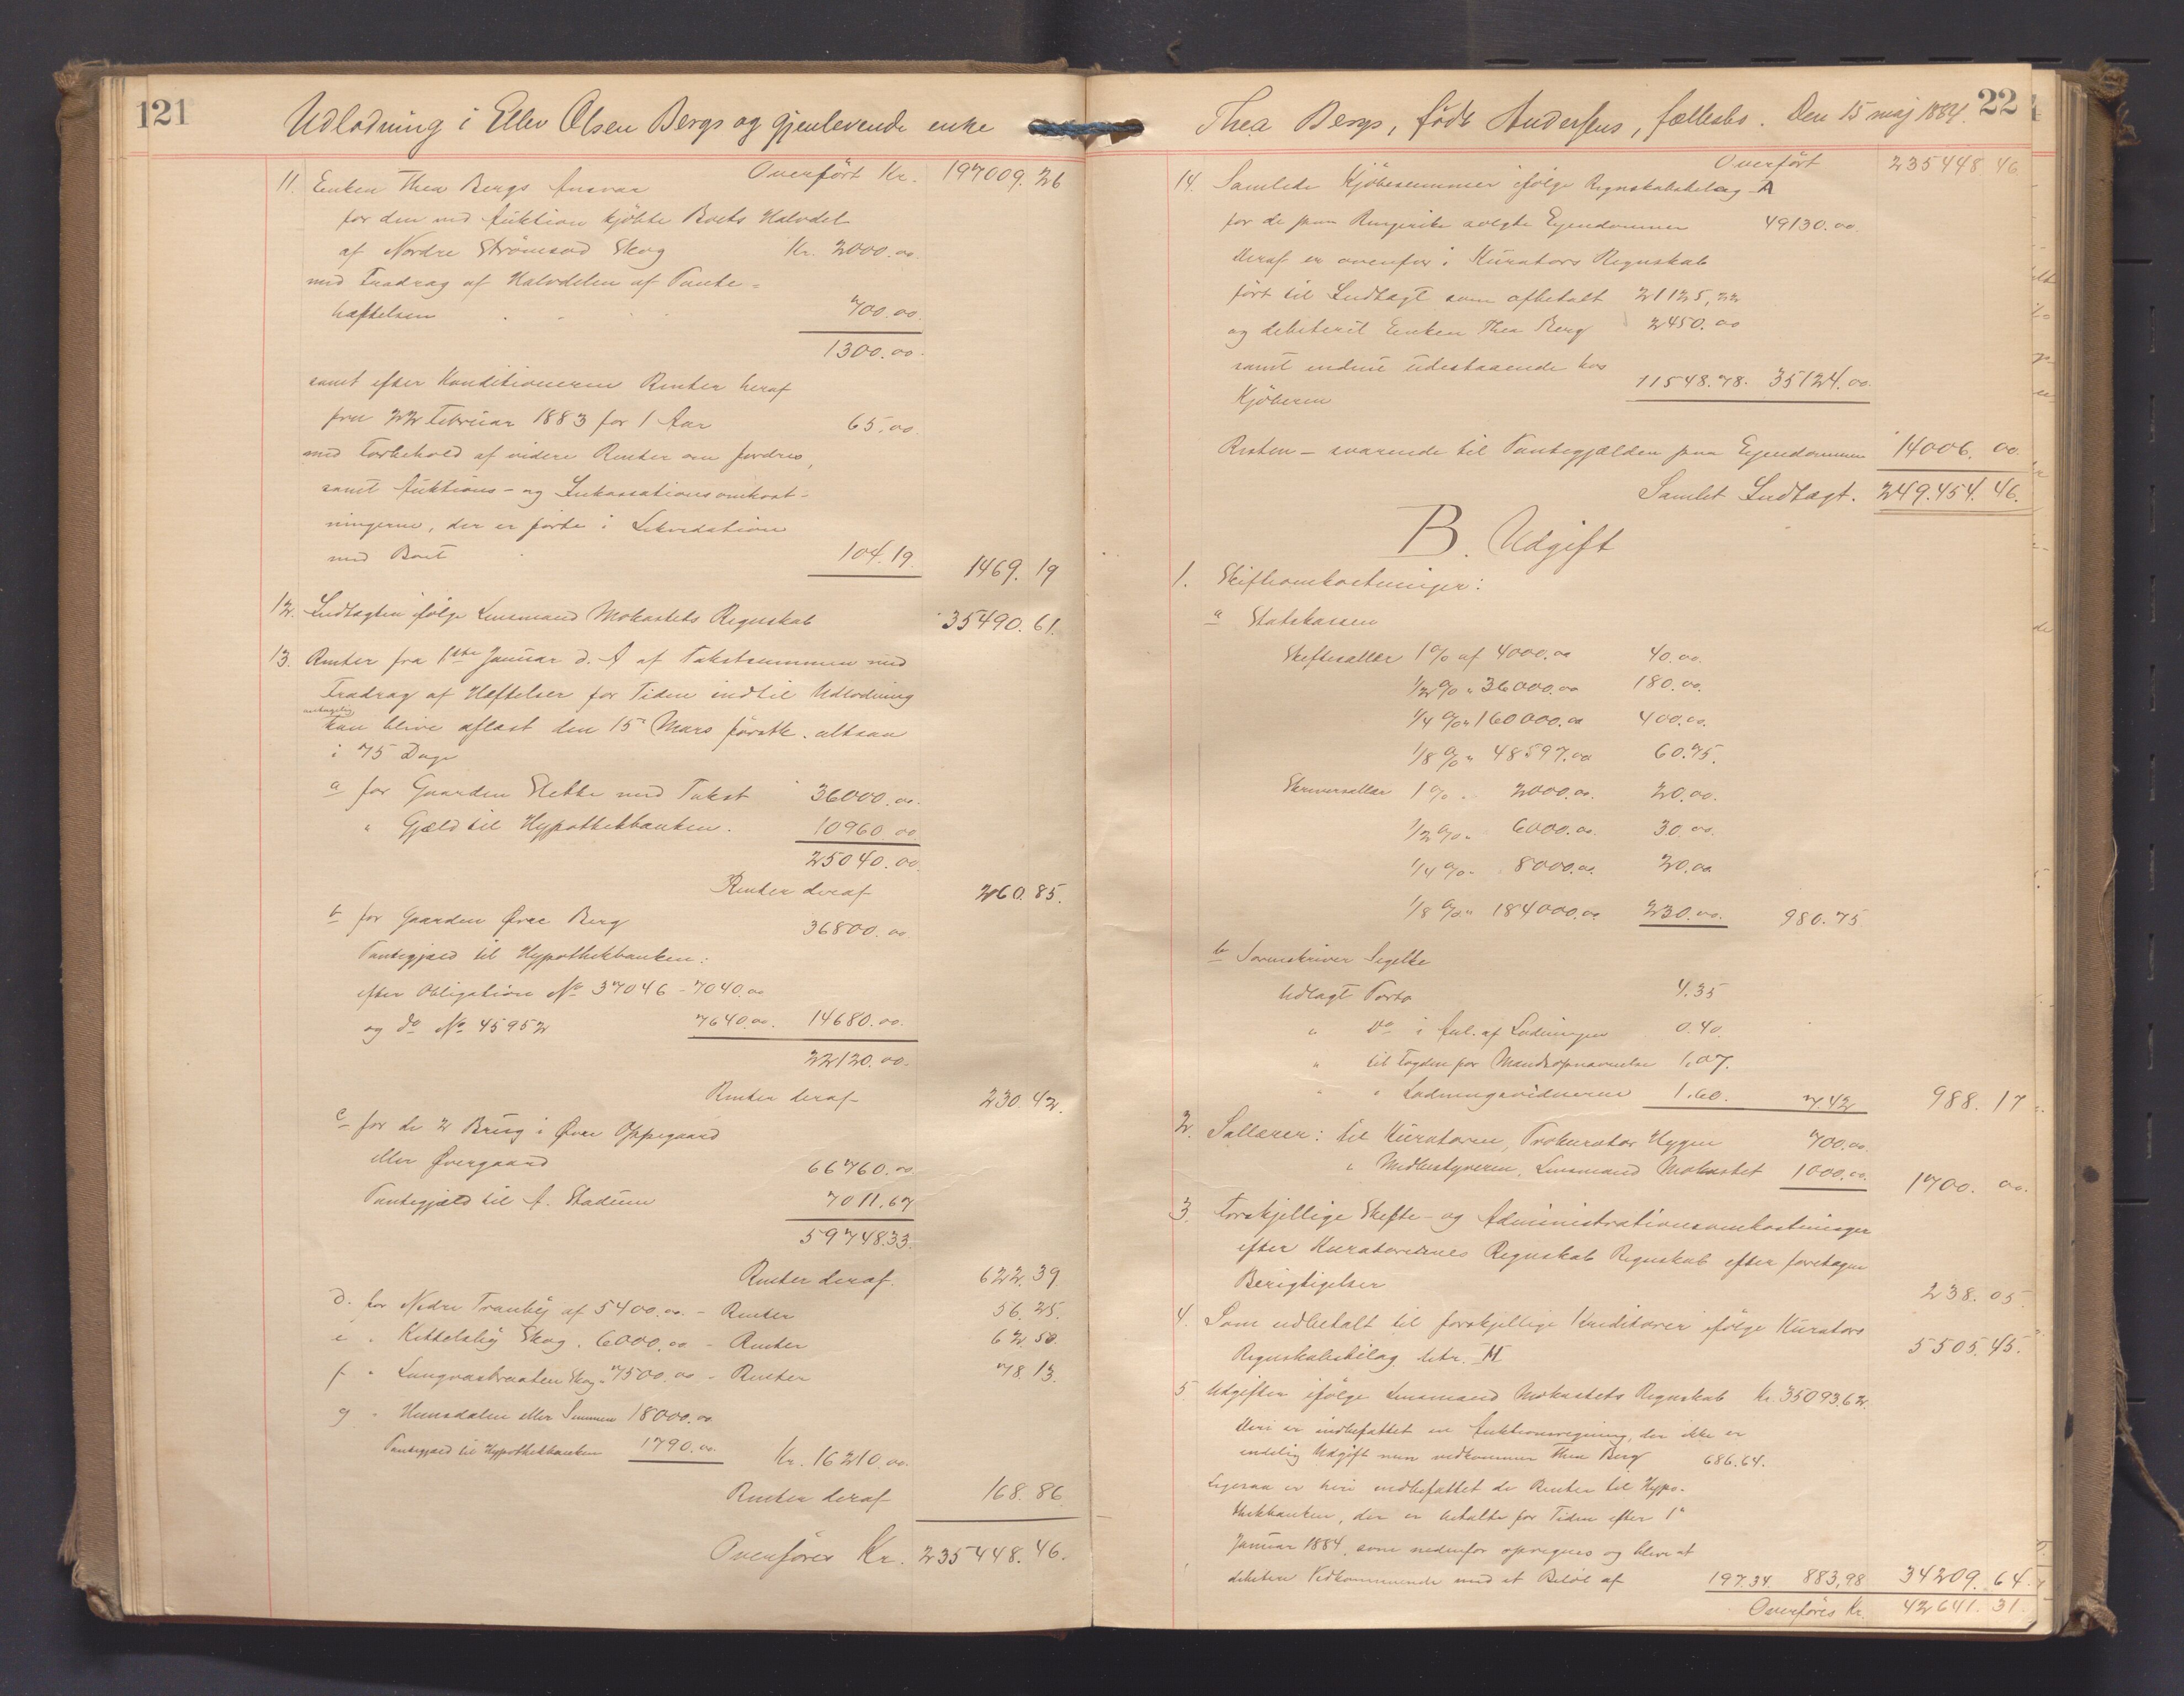 121
Udlodning i Ellev Olsen Bergs og gjenlevende enke
Overført Kr. 197009.26
11. Enken Thea Bergs Ansvar
for den ved Auktion kjøbte Boets Halvdel
af Nordre Strømsod Skog Kr. 2000.00.
med Fradrag af Halvdelen af Pante-
hæftelsen 700.00.
1300.00.
samt efter Konditionerne Renter heraf
fra 22 Februar 1883 for 1 Aar 65.00.
med Forbehold af videre Renter om fordres,
samt Auktions- og Inkassationsomkost-
ningerne, der er førte i Likvidation
med Boet 104.19. 1469.19
12. Indtægten ifølge Lensmand Mokastets Regnskab 35490.61.
13. Renter fra 1ste Januar d. A. af Takstsummen med
Fradrag af Hæftelser for Tiden indtil Udlodning
antagelig
kan blive aflæst den 15de Mars førstk. altsaa
i 75 Dage
a for Gaarden Hette med Takst 36000.00.
" Gjæld til Hypothekbanken. 10960.00
25040.00
Renter deraf 260.85.
b for Gaarden Øvre Berg 36800.00
Pantegjæld til Hypothekbanken:
efter Obligation No 37046 - 7040.00
og do No 45952 7640.00. 14680.00.
22120.00.
Renter deraf 230.42.
c for de 2 Brug i Øvre Oppegaard
eller Øvergaard 66760.00
Pantegjæld til A. Stadum 7011.67
59748.33.
Renter deraf. 622.39
d. for Nedre Tranby af 5400.00. - Renter 56.25.
e " Kittelsby Skog " 6000.00 - Renter 62.50.
f " Skog " 7500.00 - Renter 78.13.
g " Hunsdalen eller 18000.00
Pantegjæld til Hypothekbanken 1790.00. Kr. 16210.00.
Renter deraf 168.86
Overføres Kr. 235448.46.
Thea Bergs, født Andersens, fællesbo. Den 15 maj 1884. 22
Overført 235448.46
14. Samlede Kjøbesummer ifølge Regnskabsbilag A
for de paa Ringerike solgte Ejendommer 49130.00.
Deraf er ovenfor i Kurators Regnskab
ført til Indtægt som afbetalt 21125,22
og debiteret Enken Thea Berg 2450.00
samt endnu udestaaende hos
Kjøberen 11548.78. 35124.00.
Resten - svarende til Pantegjælden paa Ejendommen 14006.00.
Samlet Indtægt. 249.454.46.
B. Udgift
1. Skifteomkostninger:
a Statskassen
Skiftesallær 1% af 4000.00 40.00.
1/2% " 36000.00 180.00.
1/4% " 160000.00 400.00.
1/8% " 48597.00 60.75.
Skriversallær 1% " 2000.00. 20.00.
1/2% " 6000.00. 30.00.
1/4% " 8000.00. 20.00
1/8% " 184000.00 230.00. 980.75
b Sorenskriver Segelke
Udlagt Porto 4.35
" do i Anl. af Ladningen 0.40.
" til Fogden for Mandsopnævnelse 1.07.
" " Ladningsvidnerne 1.60. 7.42 988.17
2. Sallærer: til Kuratoren, Prokurator Hygen 700.00.
" Medbestyreren, Lensmand Mokastet 1000.00. 1700.00.
3. Forskjellige Skifte- og Administrationsomkostninger
efter Kuratorernes Regnskab Regnskab efter foretagne
Berigtigelser 238.05
4. Som udbetalt til forskjellige Kreditorer ifølge Kurators
Regnskabsbilag litr. H 5505.45.
5 Udgifter ifølge Lensmand Mokastets Regnskab Kr. 35093.62.
Heri er indbefattet en Auktionsregning, der ikke er
endelig Udgift men vedkommer Thea Berg 686.64.
Ligesaa er heri indbefattet de Renter til Hypo-
thekbanken, der er betalte for Tiden efter 1ste
Januar 1884, som nedenfor opregnes og blive at
debitere Vedkommende med et Beløb af 197.34. 883,98 34209.64.
Overføres Kr. 42641.31.